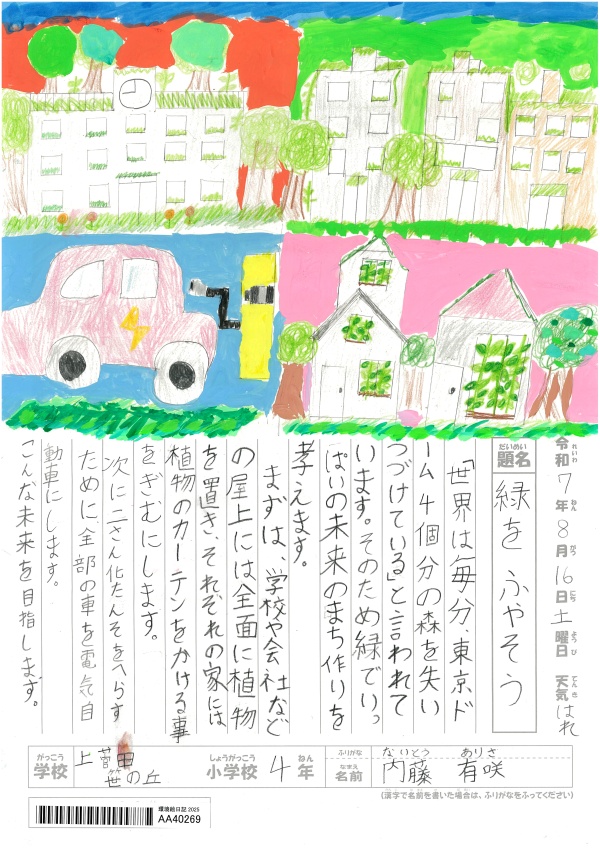 令和7年8月16日土曜日 天気はれ
れいわ ねん がつ にち ようび てんき
だいめい
題名 緑を ふやそう
「世界は毎分、東京ド
ーム4個分の森を失い
つづけている」と言われて
います。そのため緑でいっ
ぱいの未来のまち作りを
考えます。
まずは、学校や会社など
の屋上には全面に植物
を置き、それぞれの家には
植物のカーテンをかける事
をぎむにします。
次に二さん化たんそをへらす
ために全部の車を電気自
動車にします。
こんな未来を目指します。
がっこう しょうがっこう ねん
学校 上菅田笹の丘 小学校 4年
ふりがな ないとう ありさ
なまえ
名前 内藤 有咲
(漢字で名前を書いた場合は、ふりがなをふってください)
環境絵日記 2025
AA40269